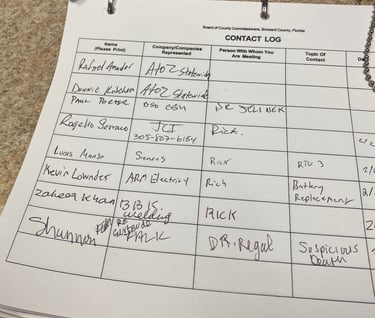 Board of County Commissioners, Broward County, Florida
CONTACT LOG
Name (Please Print) Company/Companies Represented Person With Whom You Are Meeting Topic Of Contact
Rafael Amador AtoZ Statewide
Dennis AtoZ Statewide
PAUL DSO CBM DR JELINEK
Rogelio Serrano JCI 305-807-6154 Rick.
Luis Siemens Rick RTU 3
Kevin Lowndes ARM Electric Rich Battery Replacement
Zaheer Khan BBIS Welding RICK
Shannon FALK DR. Regal Suspicious Death